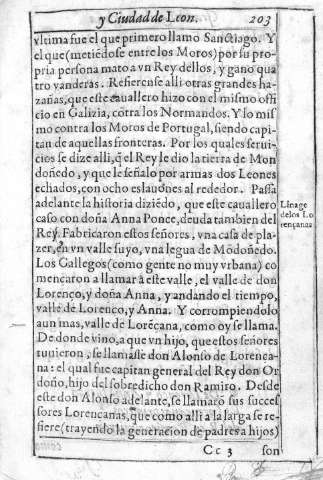 y Ciudad de Leon. 203
vltima fue el que primero llamo Sanctiago. Y
el que (metiẽdose entre los Moros) por su pro-
pria persona mato a vn Rey dellos, y gano qua
tro vanderas. Refierense alli otras grandes ha-
zañas, que este cauallero hizo con el mismo offi
cio en Galizia, cõtra los Normandos. Y lo mis
mo contra los Moros de Portugal, siendo capi-
tan de aquellas fronteras. Por los quales serui-
cios se dize alli, q̃ el Rey le dio la tierra de Mon
doñedo, y que le señalo por armas dos Leones
echados, con ocho eslauones al rededor. Passa
adelante la historia diziẽdo, que este cauallero
caso con doña Anna Ponce, deuda tambien del
Rey. Fabricaron estos señores, vna casa de pla-
zer, en vn valle suyo, vna legua de Mõdoñedo.
Los Gallegos (como gente no muy vrbana) co
mencaron a llamar à este valle, el valle de don
Lorenço, y doña Anna, y andando el tiempo,
valle de Lorenço, y Anna. Y corrompiendolo
aun mas, valle de Lorẽçana, como oy se llama.
De donde vino, a que vn hijo, que estos señores
tuuieron, se llamasse don Alonso de Lorença-
na: el qual fue capitan general del Rey don Or
doño, hijo del sobredicho don Ramiro. Desde
este don Alonso adelante, se llamarõ sus succes
sores Lorencanas, que como alli a la larga se re-
fiere (trayendo la generacion de padres a hijos)
Cc 3 son
Linage
de los Lo
rençanas